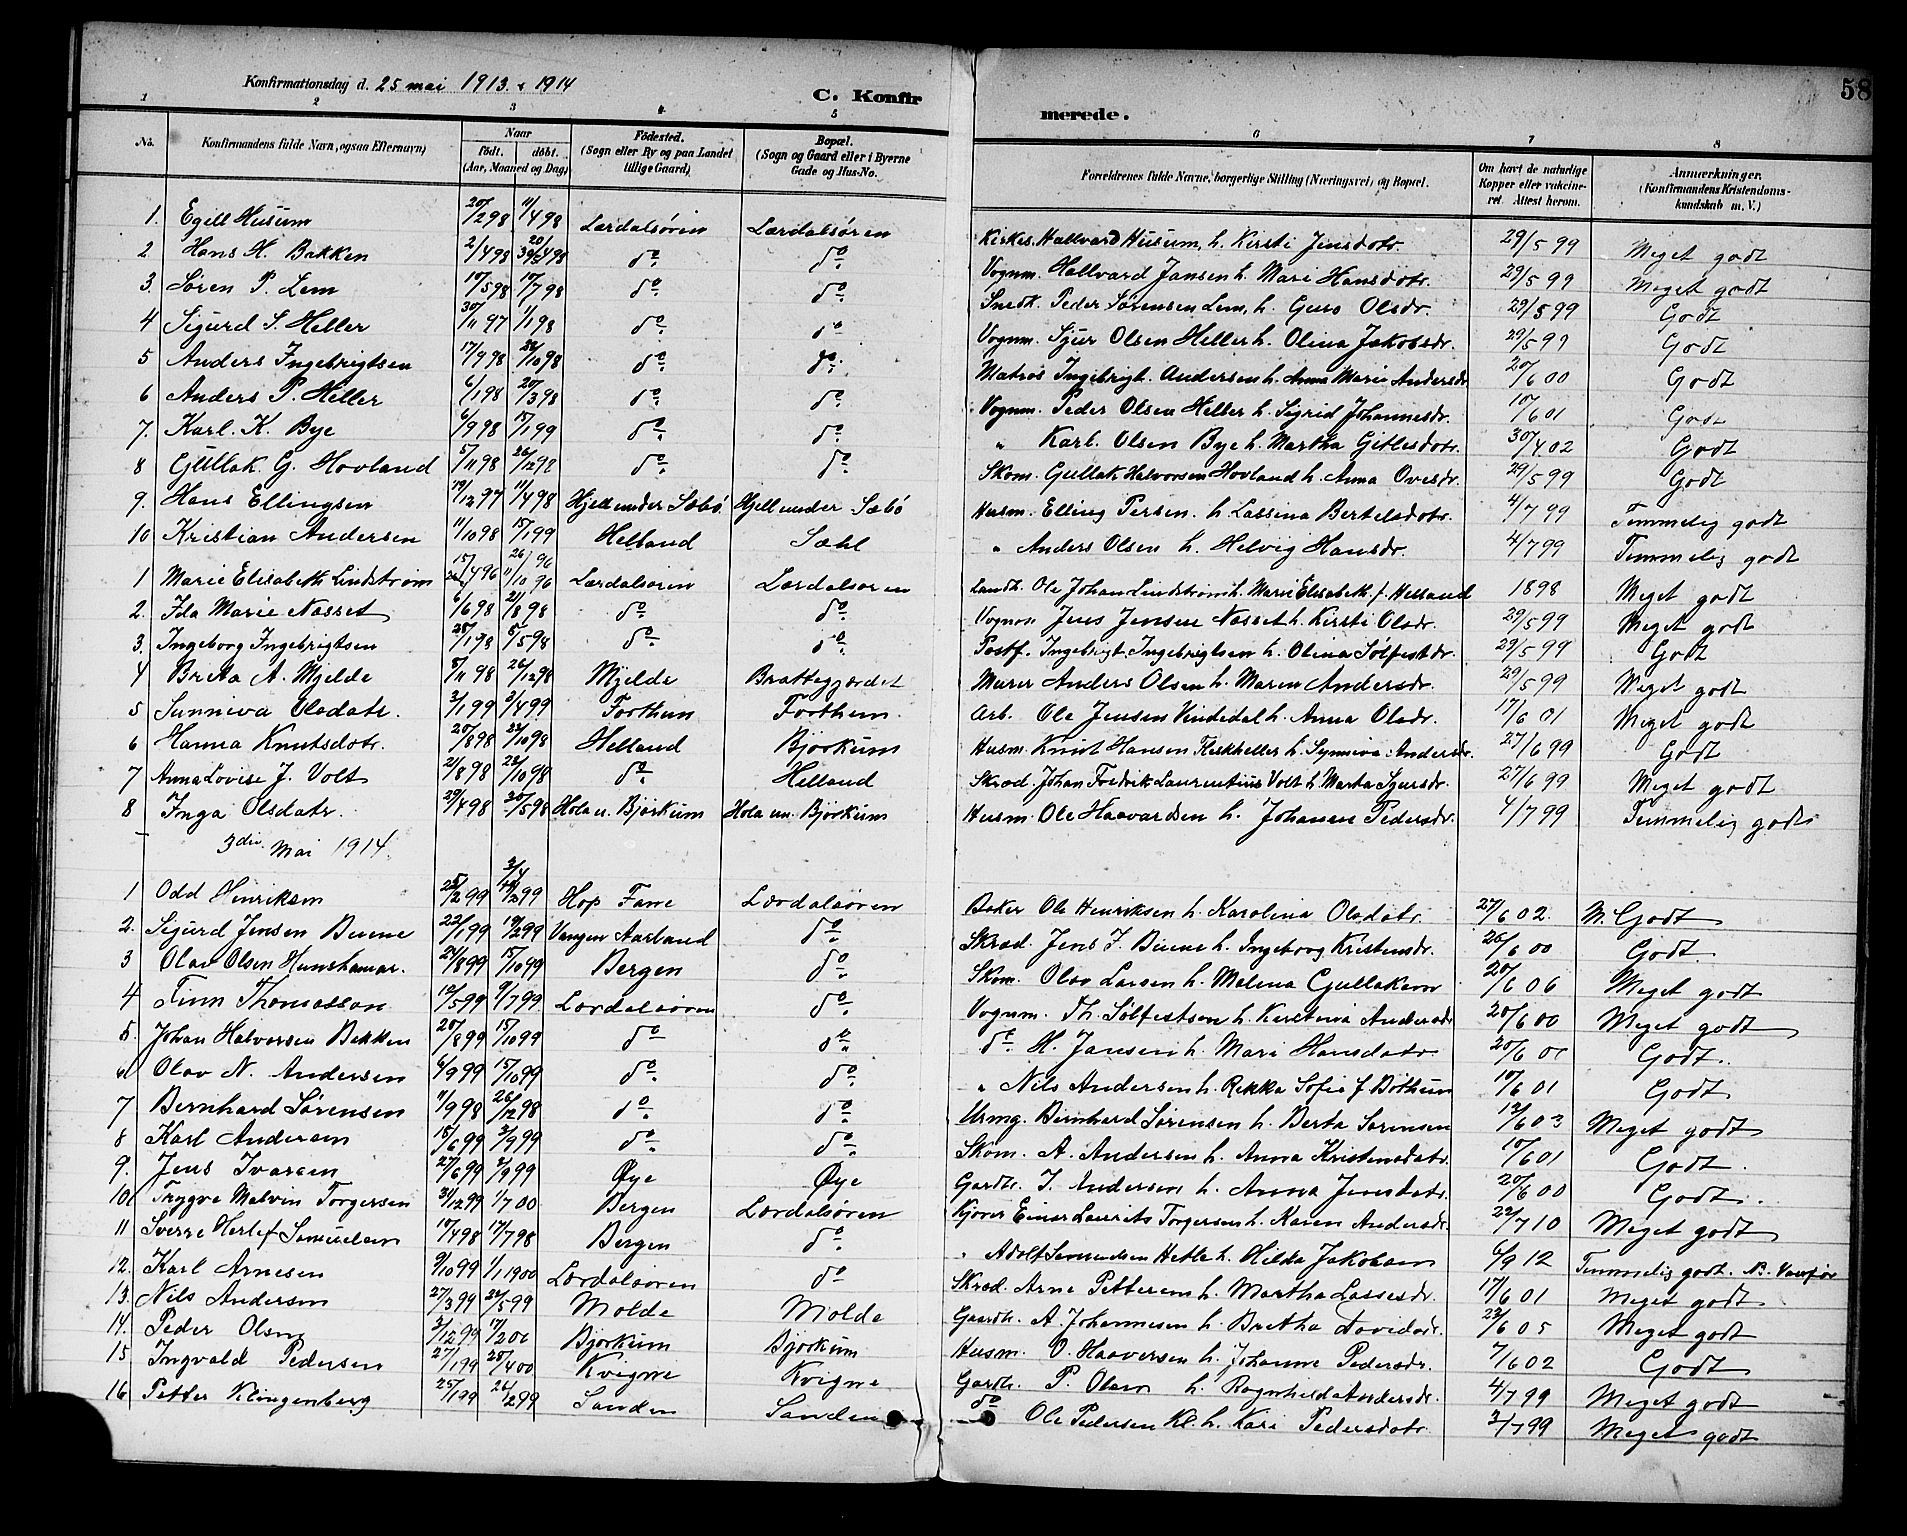 Konfirmationsdag d. 25 mai 1913 & 1914
C. Konfirmerede.
58
1 2 3 4 5 6 7 8
No. Konfirmandens fulde Navn, ogsaa Efternavn) Naar født. døbt. (Aar, Maaned og Dag) Fødested. (Sogn eller By og paa Landet tillige Gaard) Bopæl. (Sogn og Gaard eller i Byerne Gade og Hus-No. Forældrenes fulde Navne, borgerlige Stilling (Næringsvei) og Bopæl. Om havt de naturlige Kopper eller vakcineret. Attest herom. Anmærkninger. (Konfirmandens Kristendomskundskab m. V.)
1. Egill Husum 20/2 98 11/4 98 Lærdalsøren Lærdalsøren Kirkes. Hallvard Husum, h. Kirsti Jensdotr. 29/5 99 Meget godt
2 Hans H. Bakken 2/4 98 20/4 98 do do Vognm. Hallvard Jansen h. Mari Hansdotr. 29/5 99 Meget godt
3. Søren P. Lem 10/5 98 10/7 98 do do Snedk. Peder Sørensen Lem, h. Guro Olsdr. 29/5 99 Godt
4 Sigurd S. Heller 30/11 97 1/1 98 do do Vognm. Sjur Olsen Heller h. Olina Jakobsdr. 29/5 99 Godt
5 Anders Ingebrigtsen 17/9 98 23/10 98 do do Matros Ingebrigt. Andersen h. Anna Marie Andersdr 20/6 00 Godt
6 Anders P. Heller 6/1 98 20/3 98 do do Vognm. Peder Olsen Heller h. Sigrid Johannesdr. 10/6 01 Godt
7. Karl. K. Bye 6/9 98 15/1 99 do do " Karl. Olsen Bye h. Martha Gitlesdotr. 30/4 02 Godt
8 Gullak G. Hovland 5/11 98 26/12 98 do do Skom. Gullak Halvorsen Hovland h. Anna Ovesdr. 29/5 99 Godt
9. Hans Ellingsen 19/12 97 11/4 98 Hjell under Sæbø Hjell under Sæbø Husm. Elling Persen. h. Lassina Bertelsdotr. 4/7 99 Temmelig godt
10 Kristian Andersen 11/10 98 15/1 99 Helland Sæhl " Anders Olsen h. Helvig Hansdr. 4/7 99 Temmelig godt
1 Marie Elisabeth Lindstrøm 15/4 96 26/ 96 11/10 96 Lærdalsøren Lærdalsøren Landh. Ole Johan Lindstrøm h. Marie Elisabeth f. Helland 1898 Meget godt
2. Ida Marie Nasset 6/6 98 21/8 98 do do Vognm Jens Jensen Nasset h. Kirsti Olsdr. 29/5 99 Meget godt
3. Ingeborg Ingebrigtsen 25/1 98 5/5 98 do do Postf. Ingebrigt. Ingebrigtsen h. Olina Sølfestdr. 29/5 99 Godt
4 Brita A. Mjelde 5/11 98 26/12 98 Mjelde Brattegjærdet Murer Anders Olsen h. Maren Andersdr. 29/5 99 Meget godt
5 Sunniva Olsdatr. 3/1 99 2/4 99 Forthun Forthun. Arb. Ole Jensen Vindedal h. Anna Olsdr. 17/6 01 Meget godt
6 Hanna Knutsdotr. 20/8 98 23/10 98 Helland Bjørkum Husm. Knut Hansen Fleskheller h. Synneva Andersdr. 27/6 99 Godt
7 Anna Lovise J. Volt 21/8 98 23/10 98 do Helland Skræd. Johan Fredrik Laurentius Volt h. Marta Sjursdr. 27/6 99 Meget godt
8 Inga Olsdatr. 29/4 98 30/5 98 Hola u. Bjørkum Hola un. Bjørkum Husm. Ole Haavardsen h. Johanne Pedersdr. 4/7 99 Temmelig godt
3die Mai 1914.
1 Odd Henriksen 25/2 99 3/4 99 Hop Fane Lærdalsøren Baker Ole Henriksen h. Karolina Olsdatr. 27/6 02 M. Godt
2. Sigurd Jensen Buene 22/1 99 19/2 99 Vangen Aurland do Skræd. Jens J. Buene h. Ingeborg Kristensdr. 26/6 00 Godt.
3 Olav Olsen Hunshamar. 24/8 99 15/10 99 Bergen do Skom. Olav Larsen h. Malena Gullaksen 20/6 06 Meget godt
4 Finn Thomassen 10/5 99 9/7 99 Lærdalsøren do Vognm. Th. Sølfestsen h. Kirstina Andersdr 20/6 00 Meget godt
5. Johan Halvorsen Bakken 20/8 99 15/10 99 do do do H. Jansen h. Mari Hansdatr 20/6 01 Godt.
6 Olav N. Andersen 6/9 99 15/10 99 do do " Nils Andersen h. Rekka Sofie f Bøthun 10/6 01 Godt
7 Bernhard Sørensen 11/9 98 26/12 98 do do Urmg. Bernhard Sørensen h. Berta Sørensen 12/6 03 Meget godt
8 Karl Andersen 15/6 99 3/9 99 do do Skom. A. Andersen h. Anna Kristensdatr. 10/6 01 Godt.
9. Jens Ivarsen 27/6 99 3/9 99 Øye Øye Gardbr. I. Andersen h. Anna Jensdatr. 20/6 00 Godt.
10 Trygve Malvin Torgersen 31/12 99 1/7 00 Bergen Lærdalsøren Kjører Einar Laurits Torgersen h. Karen Andersdr 22/7 10 Meget godt
11 Sverre Herlef Samuelsen 10/4 98 17/7 98 Bergen do " Adolf Samuelsen Hetle h. Hilda Jakobsen 6/9 12 Temmelig godt.
12. Karl Arnesen 9/10 99 1/1 1900 Lærdalsøren do Skræd. Arne Pettersen h. Martha Lassesdr. 17/6 01 Meget godt
13. Nils Andersen 27/3 99 22/5 99 Molde Molde Gaardbr. A. Johannesen h. Bretha Davidsdr. 23/6 05 Meget godt
14. Peder Olsen 3/12 99 17/2 00 Bjørkum Bjørkum Husm. O. Haaversen h. Johanne Pedersdr. 7/6 02 Godt
15 Ingvald Pedersen 27/1 99 20/4 00 Kvigne Kvigne Gardbr. P. Olsen h. Ragnhilda Andersdr. 4/7 99 Meget godt
16 Petter Klingenberg 25/1 99 26/2 99 Sanden Sanden do Ole Pedersen Kl. h. Kari Pedersdotr 3/7 99 Meget godt